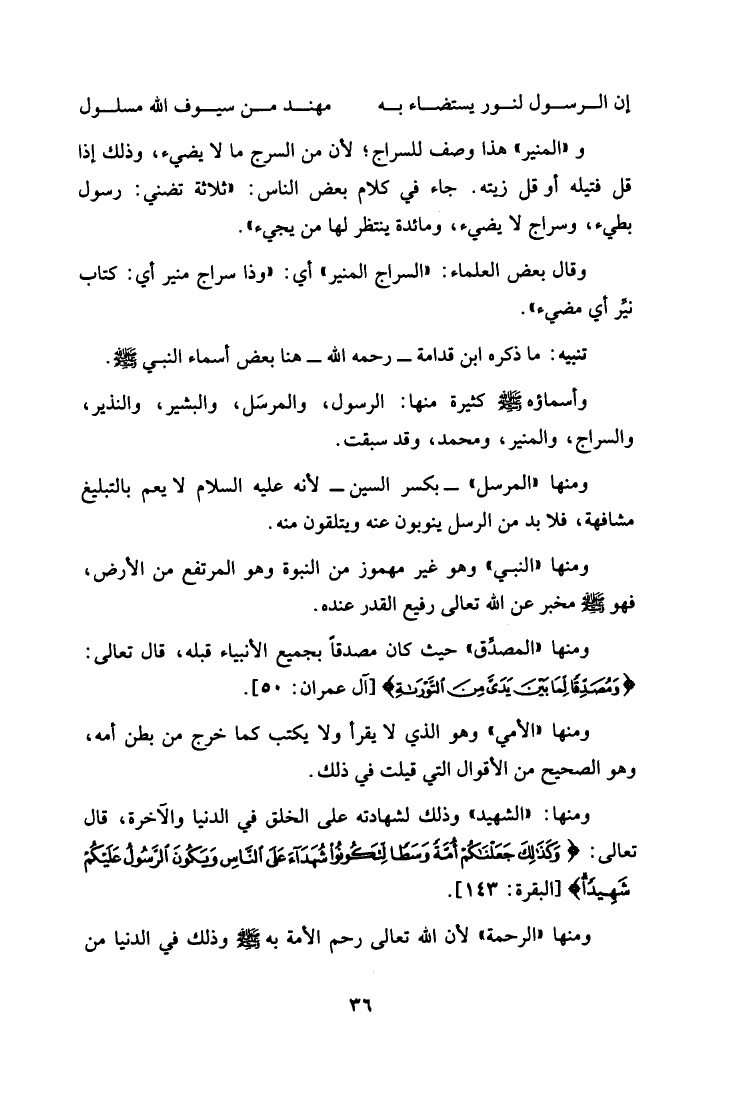 إن الـرسـول لنـور يستضـاء بـه مهنـد مـن سيـوف الله مسلـول
و «المنير» هذا وصف للسراج؛ لأن من السرج ما لا يضيء، وذلك إذا
قل فتيله أو قل زيته. جاء في كلام بعض الناس: «ثلاثة تضني: رسول
بطيء، وسراج لا يضيء، ومائدة ينتظر لها من يجيء».
وقال بعض العلماء: «السراج المنير» أي: «وذا سراج منير أي: كتاب
نيِّر أي مضيء».
تنبيه: ما ذكره ابن قدامة ــ رحمه الله ــ هنا بعض أسماء النبي ﷺ.
وأسماؤه ﷺ كثيرة منها: الرسول، والمرسَل، والبشير، والنذير،
والسراج، والمنير، ومحمد، وقد سبقت.
ومنها «المرسل» ــ بكسر السين ــ لأنه عليه السلام لا يعم بالتبليغ
مشافهة، فلا بد من الرسل ينوبون عنه ويتلقون منه.
ومنها «النبي» وهو غير مهموز من النبوة وهو المرتفع من الأرض،
فهو ﷺ مخبر عن الله تعالى رفيع القدر عنده.
ومنها «المصدِّق» حيث كان مصدقاً بجميع الأنبياء قبله، قال تعالى:
﴿وَمُصَدِّقًا لِّمَا بَيْنَ يَدَيَّ مِنَ التَّوْرَىٰةِ﴾ [آل عمران: ٥٠].
ومنها «الأمي» وهو الذي لا يقرأ ولا يكتب كما خرج من بطن أمه،
وهو الصحيح من الأقوال التي قيلت في ذلك.
ومنها: «الشهيد» وذلك لشهادته على الخلق في الدنيا والآخرة، قال
تعالى: ﴿وَكَذَٰلِكَ جَعَلْنَٰكُمْ أُمَّةً وَسَطًا لِّتَكُونُوا۟ شُهَدَآءَ عَلَى ٱلنَّاسِ وَيَكُونَ ٱلرَّسُولُ عَلَيْكُمْ
شَهِيدًا﴾ [البقرة: ١٤٣].
ومنها «الرحمة» لأن الله تعالى رحم الأمة به ﷺ وذلك في الدنيا من
٣٦